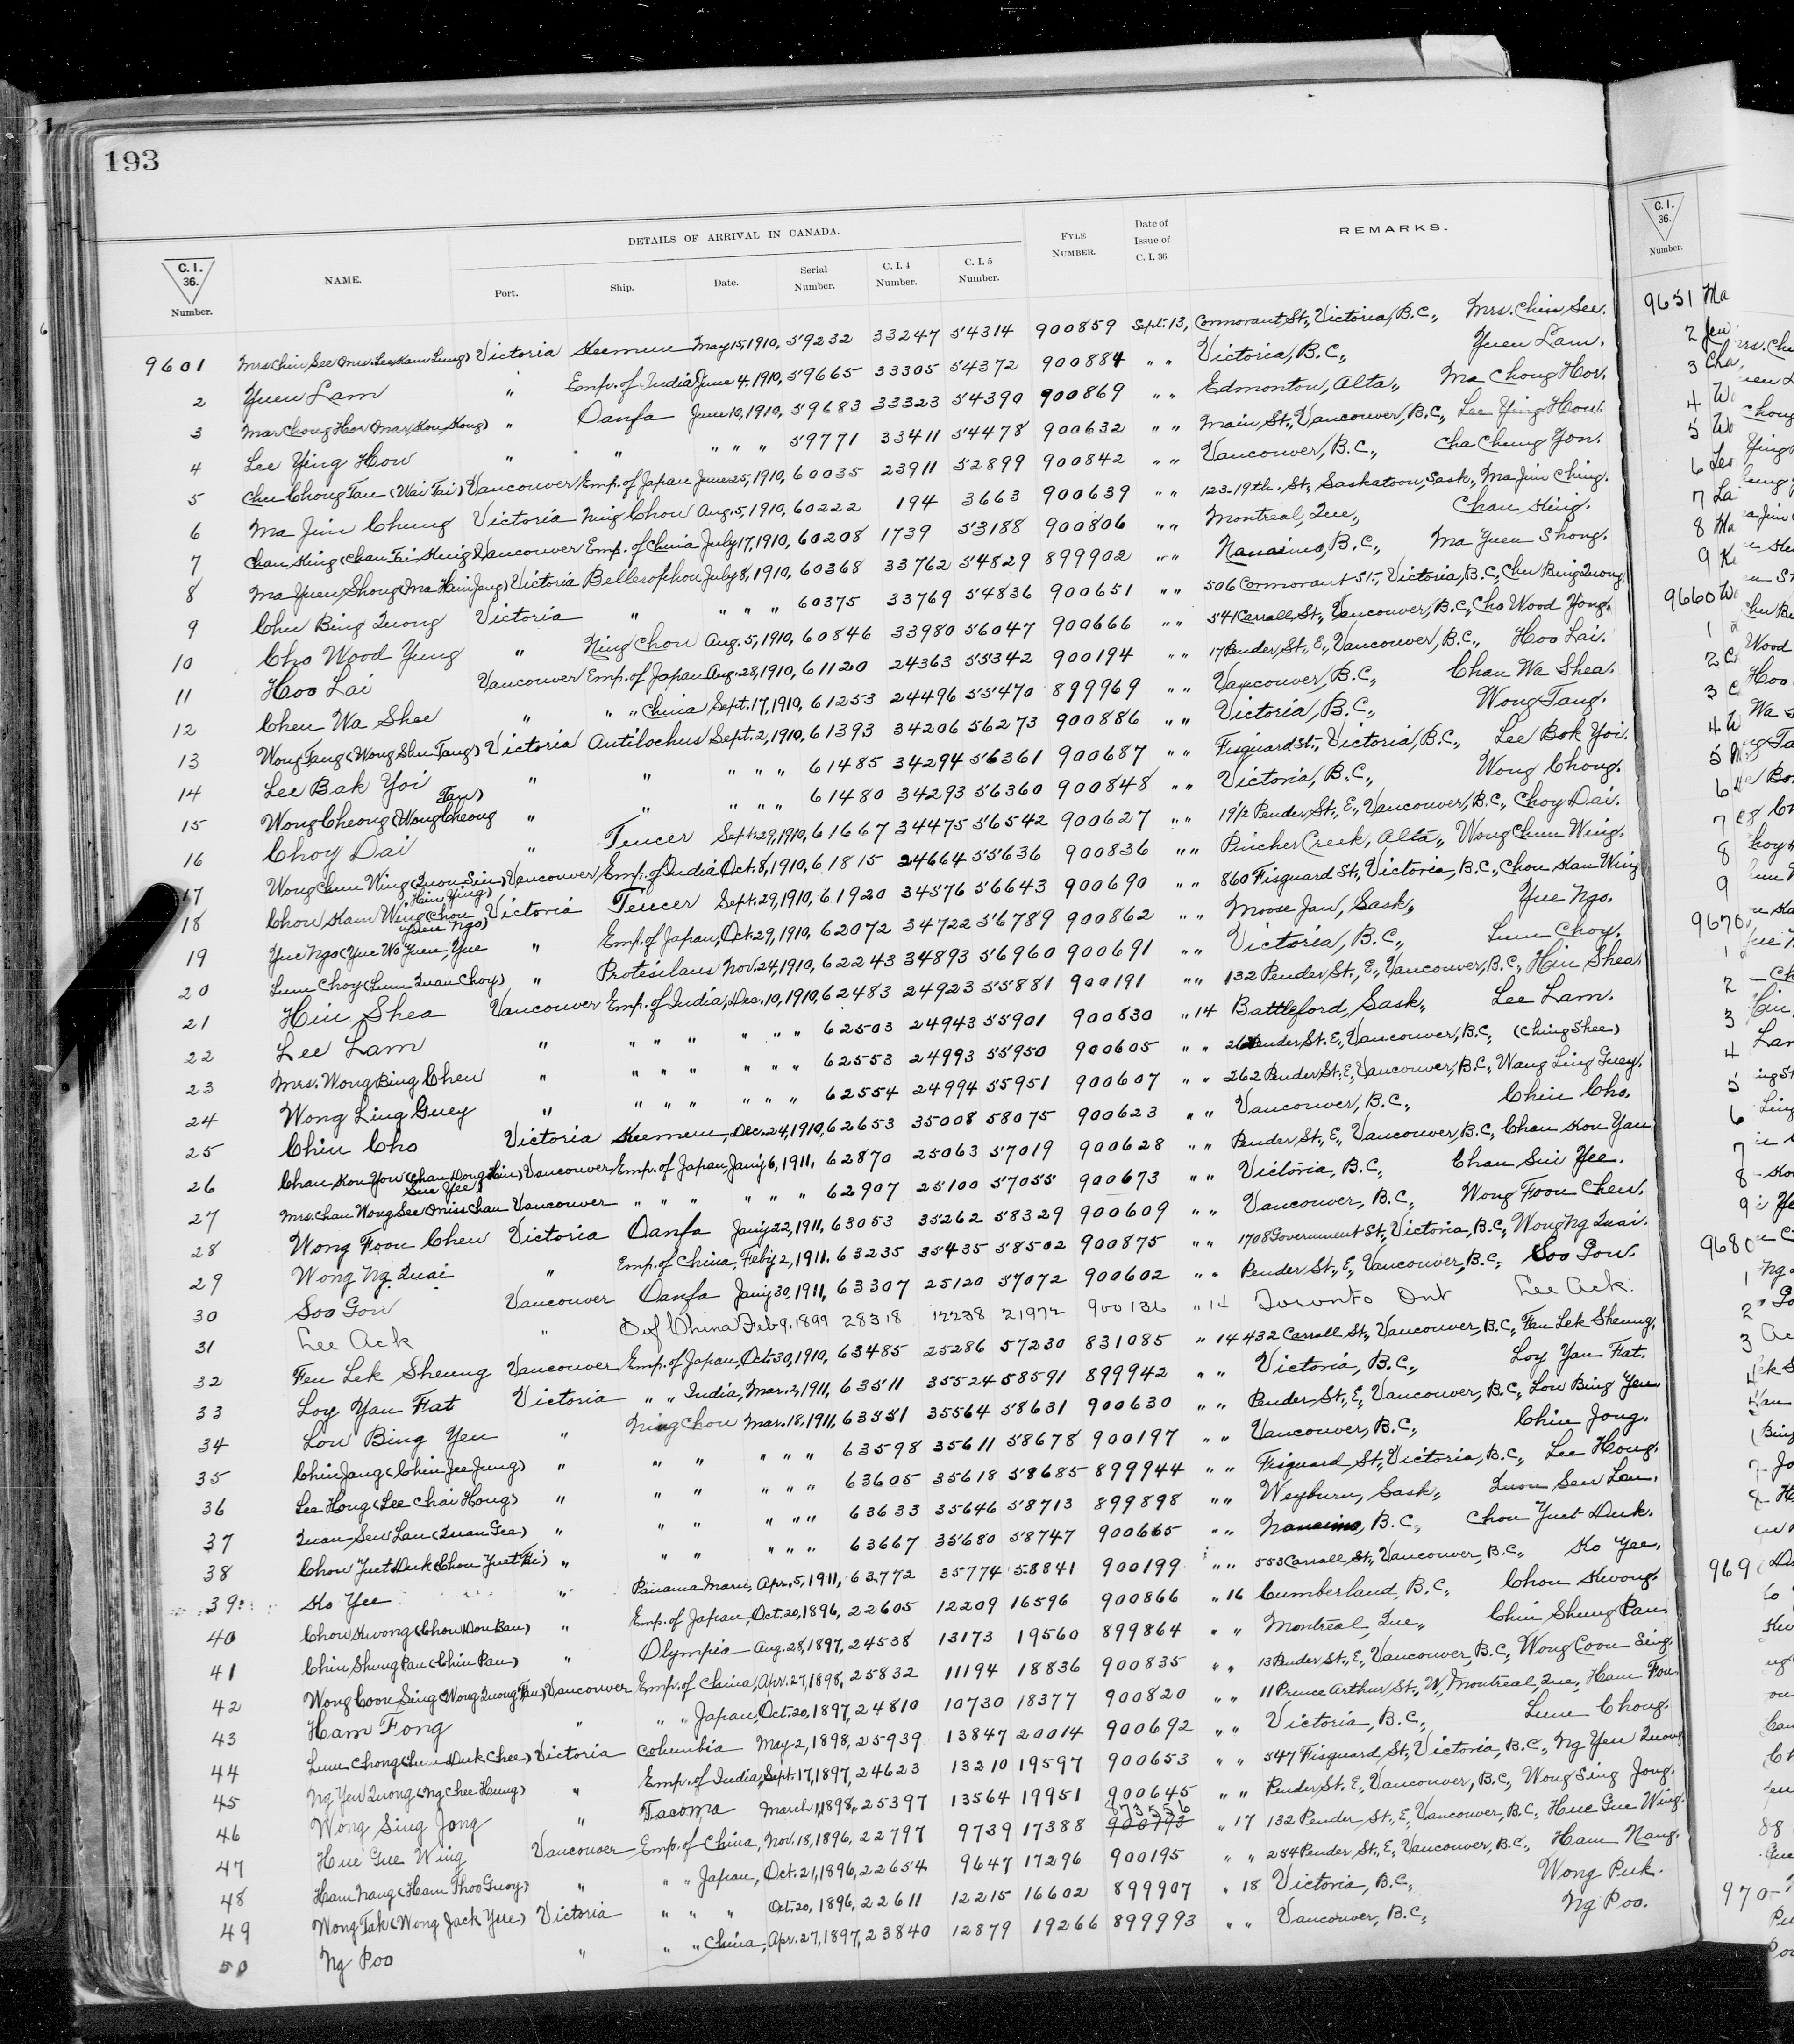 193
DETAILS OF ARRIVAL IN CANADA.
C. I. 36. Number. NAME. Port. Ship. Date. Serial Number. C. I. 4 Number. C. I. 5 Number. FYLE NUMBER. Date of Issue of C. I. 36. REMARKS.
9601 Mrs. Chin See (Mrs. Lee Kam Lung) Victoria Keemun May 15, 1910, 59232 33247 54314 900859 Sept. 13, Cormorant St., Victoria, B.C., Mrs. Chin See.
2 Yuen Lam " Emp. of India June 4, 1910, 59665 33305 54372 900884 " " Victoria, B.C., Yuen Lam.
3 Mar Chong Hor (Mar Kou Kong) " Oanfa June 10, 1910, 59683 33323 54390 900869 " " Edmonton, Alta., Ma Chong Hor.
4 Lee Ying How " " " " " 59771 33411 54478 900632 " " Main St., Vancouver, B.C., Lee Ying How.
5 Chu Chong Tau (Wai Tai) Vancouver Emp. of Japan June 25, 1910, 60035 23911 52899 900842 " " Vancouver, B.C., Cha Chung Yon.
6 Ma Jim Chung Victoria Ning Chow Aug. 5, 1910, 60222 194 3663 900639 " " 123-19th. St., Saskatoon, Sask., Ma Jim Ching.
7 Chan King (Chan Tai King) Vancouver Emp. of China July 17, 1910, 60208 1739 53188 900806 " " Montreal, Que., Chan King.
8 Ma Yuen Shong (Ma Hain Jang) Victoria Bellerophon July 8, 1910, 60368 33762 54829 899902 " " Nanaimo, B.C., Ma Yuen Shong.
9 Chu Bing Quong Victoria " " " " 60375 33769 54836 900651 " " 506 Cormorant St., Victoria, B.C., Chu Bing Quong.
10 Cho Wood Yung " Ning Chow Aug. 5, 1910, 60846 33980 56047 900666 " " 541 Carrall St., Vancouver, B.C., Cho Wood Yong.
11 Hoo Lai Vancouver Emp. of Japan Aug. 28, 1910, 61120 24363 55342 900194 " " 17 Pender St., E., Vancouver, B.C., Hoo Lai.
12 Cheu Wa Shee " " " China Sept. 17, 1910, 61253 24496 55470 899969 " " Vancouver, B.C., Chan Wa Shea.
13 Wong Tang (Wong Shu Tang) Victoria Antilochus Sept. 2, 1910, 61393 34206 56273 900886 " " Victoria, B.C., Wong Tang.
14 Lee Bak Yoi " " " " " 61485 34294 56361 900687 " " Fisguard St., Victoria, B.C., Lee Bok Yoi.
15 Wong Cheong (Wong Cheong Tau) " " " " " 61480 34293 56360 900848 " " Victoria, B.C., Wong Chong.
16 Choy Dai " Teucer Sept. 29, 1910, 61667 34475 56542 900627 " " 19 1/2 Pender St., E., Vancouver, B.C., Choy Dai.
17 Wong Chun Wing (Quon Sin) Vancouver Emp. of India Oct. 8, 1910, 61815 24664 55636 900836 " " Pincher Creek, Alta., Wong Chun Wing.
18 Chou Kam Wing (Chou Hain Ying) Victoria Teucer Sept. 29, 1910, 61920 34576 56643 900690 " " 860 Fisguard St., Victoria, B.C., Chou Kan Wing
19 Yue Ngo (Yue Wo Yuen, Yue Yuen Ngo) " Emp. of Japan, Oct. 29, 1910, 62072 34722 56789 900862 " " Moose Jaw, Sask., Yue Ngo.
20 Lum Choy (Lum Quan Choy) " Protesilaus Nov. 24, 1910, 62243 34893 56960 900691 " " Victoria, B.C., Lum Choy.
21 Hin Shea Vancouver Emp. of India, Dec. 10, 1910, 62483 24923 55881 900191 " " 132 Pender St., E., Vancouver, B.C., Hin Shea.
22 Lee Lam " " " " " " " 62503 24943 55901 900830 " 14 Battleford, Sask., Lee Lam.
23 Mrs. Wong Bing Cheu " " " " " " " 62553 24993 55950 900605 " " 262 Pender St. E., Vancouver, B.C., (Ching Shee)
24 Wong Ling Guey " " " " " " " 62554 24994 55951 900607 " " 262 Pender St., E., Vancouver, B.C., Wang Ling Guey.
25 Chin Cho Victoria Keemun, Dec. 24, 1910, 62653 35008 58075 900623 " " Vancouver, B.C., Chin Cho.
26 Chan Kou You (Chan Dong Hin) Vancouver Emp. of Japan, Jan'y 6, 1911, 62870 25063 57019 900628 " " Pender St., E., Vancouver, B.C., Chan Kou Yau
27 Mrs. Chan Wong See (Miss Chan Sui Yee) Vancouver " " " " " " 62907 25100 57055 900673 " " Victoria, B.C., Chan Sui Yee.
28 Wong Foon Chew Victoria Oanfa Jan'y 22, 1911, 63053 35262 58329 900609 " " Vancouver, B.C., Wong Foon Chew.
29 Wong Ng Quai " Emp. of China, Feb'y 2, 1911, 63235 35435 58502 900875 " " 1708 Government St., Victoria, B.C., Wong Ng Quai.
30 Soo Gow Vancouver Oanfa Jan'y 30, 1911, 63307 25120 57072 900602 " " Pender St., E., Vancouver, B.C., Soo Gow.
31 Lee Ack " E of China Feb 9, 1899 28318 12238 21972 900136 " 14 Toronto Ont Lee Ack.
32 Feu Lek Sheung Vancouver Emp. of Japan, Oct. 30, 1910, 63485 25286 57230 831085 " 14 432 Carrall St., Vancouver, B.C., Fau Lek Sheung.
33 Loy Yan Fat Victoria " " India, Mar. 2, 1911, 63511 35524 58591 899942 " " Victoria, B.C., Loy Yan Fat.
34 Low Bing Yeu " Ning Chow Mar. 18, 1911, 63551 35564 58631 900630 " " Pender St., E., Vancouver, B.C., Low Bing Yeu.
35 Chin Jang (Chin Jee Jung) " " " " " " 63598 35611 58678 900197 " " Vancouver, B.C., Chin Jong.
36 Lee Hong (Lee Chai Hong) " " " " " " 63605 35618 58685 899944 " " Fisguard St., Victoria, B.C., Lee Hong.
37 Quan Sew Lau (Quan Gee) " " " " " " 63633 35646 58713 899898 " " Weyburn, Sask., Quon Sew Lau.
38 Chou Yuet Duk (Chou Yuet Fai) " " " " " " 63667 35680 58747 900665 " " Nanaimo, B.C., Chou Yuet Duk.
39 Ko Yee " Panama Maru, Apr. 5, 1911, 63772 35774 58841 900199 " " 553 Carrall St., Vancouver, B.C., Ko Yee.
40 Chou Kwong (Chou Dou Bau) " Emp. of Japan, Oct. 20, 1896, 22605 12209 16596 900866 " 16 Cumberland, B.C., Chou Kwong.
41 Chin Shung Pau (Chin Pau) " Olympia Aug. 28, 1897, 24538 13173 19560 899864 " " Montreal, Que., Chin Shung Pau.
42 Wong Coon Sing (Wong Quong Tau) Vancouver Emp. of China, Apr. 27, 1898, 25832 11194 18836 900835 " " 13 Pender St., E., Vancouver, B.C., Wong Coon Sing.
43 Ham Fong " " " Japan, Oct. 20, 1897, 24810 10730 18377 900820 " " 11 Prince Arthur St., W., Montreal, Que., Ham Fou
44 Lum Chong (Lum Duk Chee) Victoria Columbia May 2, 1898, 25939 13847 20014 900692 " " Victoria, B.C., Lum Chong.
45 Ng Yeu Quong (Ng Chee Hung) " Emp. of India, Sept. 17, 1897, 24623 13210 19597 900653 " " 547 Fisguard St., Victoria, B.C., Ng Yeu Quong
46 Wong Sing Jong " Tacoma March 1, 1898, 25397 13564 19951 900645 " " Pender St. E., Vancouver, B.C., Wong Sing Jong.
47 Hue Gue Wing Vancouver Emp. of China, Nov. 18, 1896, 22797 9739 17388 873556 " 17 132 Pender St., E., Vancouver, B.C., Hue Gue Wing.
48 Ham Nang (Ham Thoo Guoy) " " " Japan, Oct. 21, 1896, 22654 9647 17296 900195 " " 254 Pender St., E., Vancouver, B.C., Ham Nang.
49 Wong Tak (Wong Jack Yue) Victoria " " " Oct. 20, 1896, 22611 12215 16602 899907 " 18 Victoria, B.C., Wong Puk.
50 Ng Poo " " " China, Apr. 27, 1897, 23840 12879 19266 899993 " " Vancouver, B.C., Ng Poo.
C. I. 36. Number.
9651 Ma
2
3 Cha
4
5
6
7 La
8 Ma
9
9660
9670
9680